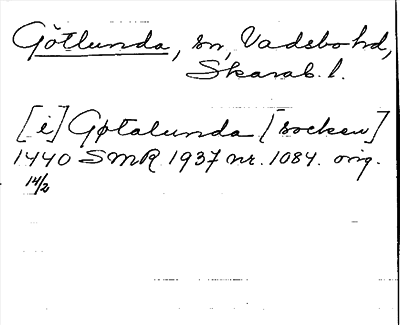 Götlunda, sn, Vadsbo hd,
Skarab. l.
[i] Gøtalunda [socken]
1440 SMR 1937 nr. 1084. orig.
14/2